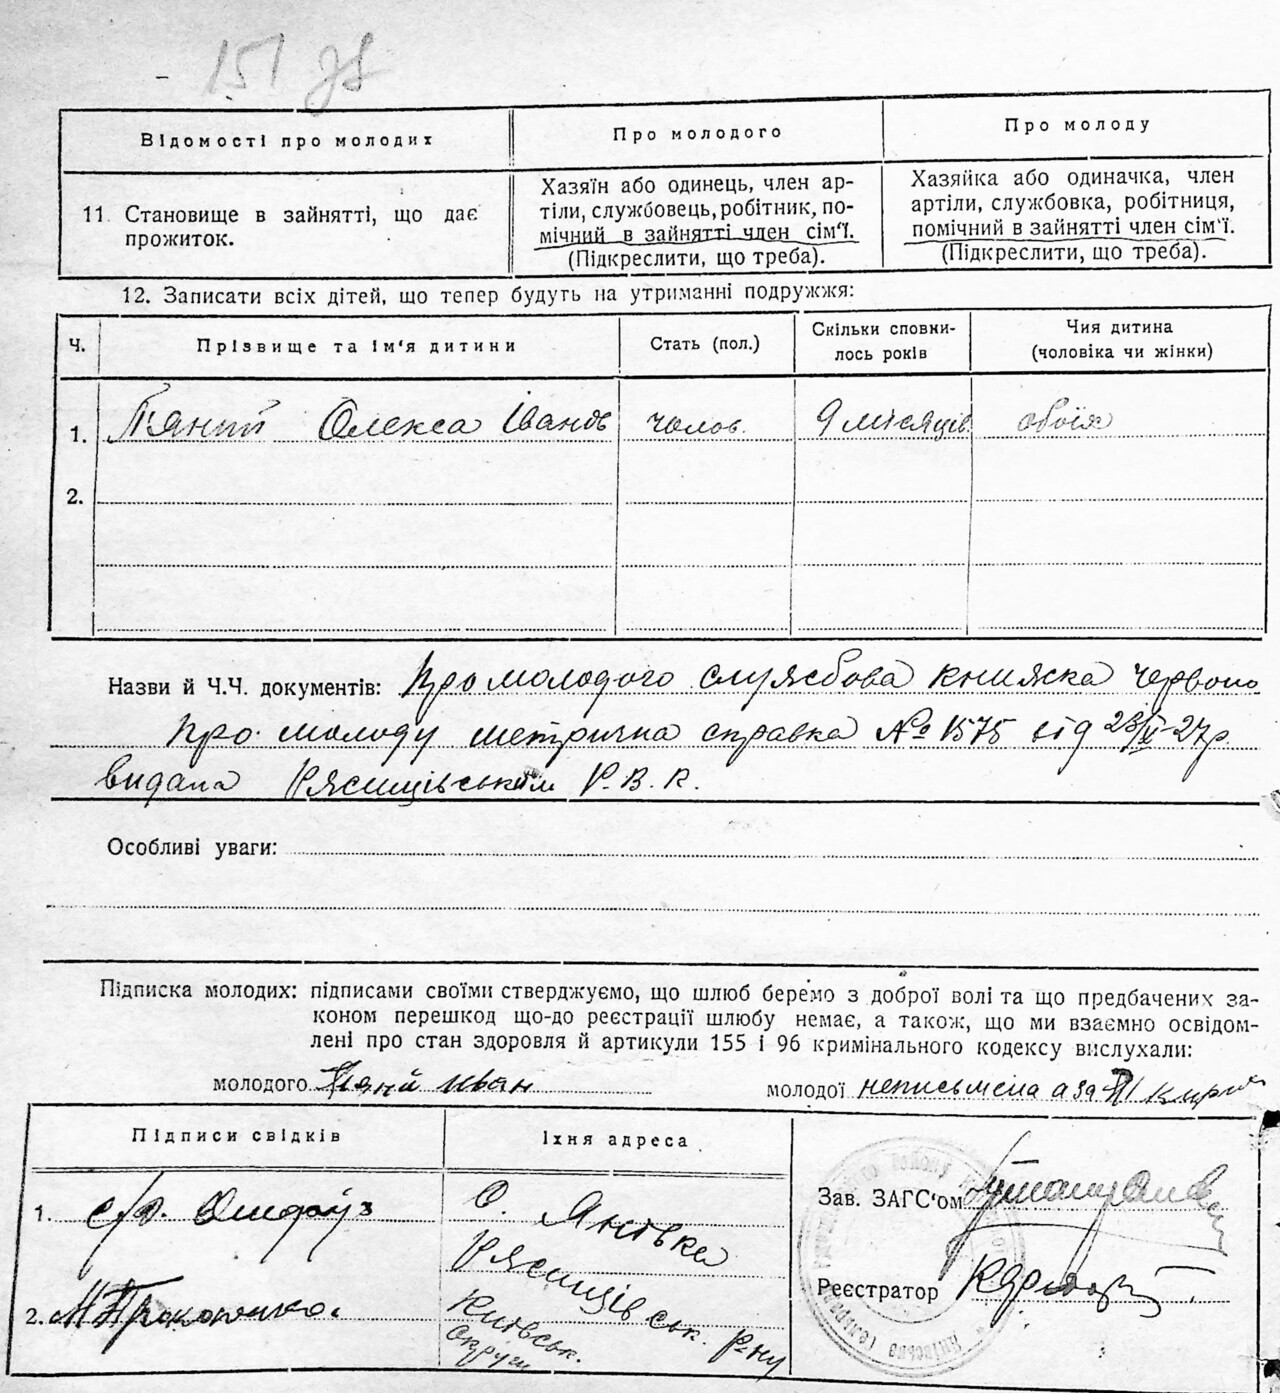 151 зв
Відомості про молодих
Про молодого
Про молоду
11. Становище в зайнятті, що дає
прожиток.
Хазяїн або одинець, член ар-
тіли, службовець, робітник, по-
мічний в зайнятті член сім'ї.
(Підкреслити, що треба).
Хазяйка або одиначка, член
артіли, службовка, робітниця,
помічний в зайнятті член сім'ї.
(Підкреслити, що треба).
12. Записати всіх дітей, що тепер будуть на утриманні подружжя:
Ч.
Прізвище та ім'я дитини
Стать (пол.)
Скільки сповни-
лось років
Чия дитина
(чоловіка чи жінки)
1. Пяний Олекса Іванов чолов. 9 місяців обоїх
2.
Назви й Ч.Ч. документів: Про молодого службова книжка червоно
Про молоду метрична справка № 1575 від 23/ІІ-27р.
видана Ржищівським Р.В.К.
Особливі уваги:
Підписка молодих: підписами своїми стверджуємо, що шлюб беремо з доброї волі та що предбачених за-
коном перешкод що-до реєстрації шлюбу немає, а також, що ми взаємно освідом-
лені про стан здоровля й артикули 155 і 96 кримінального кодексу вислухали:
молодого Пяній Иван
молодої неписьмена а за
Підписи свідків
Їхня адреса
1.
С. Янівка
Ржищівськ. р-ну
2. М Прокопенко.
Київськ.
Округи
Зав. ЗАГС'ом
Реєстратор